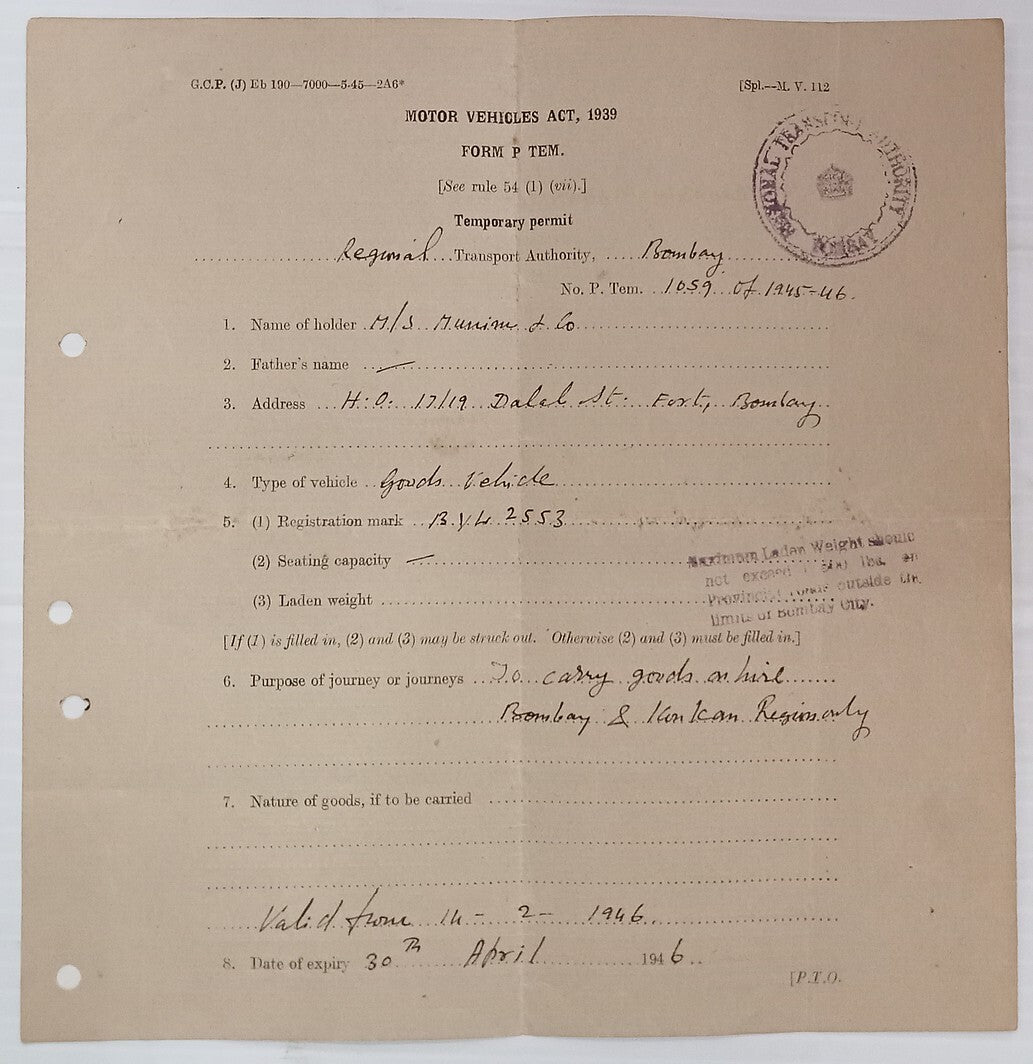 G.C.P. (J) Eb 190—7000—5-45—2A6*
[Spl.—M. V. 112
MOTOR VEHICLES ACT, 1939
FORM P TEM.
[See rule 54 (1) (vii).]
Temporary permit
REGIONAL TRANSPORT AUTHORITY
BOMBAY
Regional Transport Authority, Bombay
No. P. Tem. 1059 of 1945-46.
1. Name of holder M/S Munim & Co
2. Father's name —
3. Address H.O. 17/19 Dalal St. Fort, Bombay
4. Type of vehicle Goods Vehicle
5. (1) Registration mark 2553
(2) Seating capacity —
(3) Laden weight
Maximum Laden Weight should
not exceed lbs. on
Provincial roads outside the
limits of Bombay City.
[If (1) is filled in, (2) and (3) may be struck out. Otherwise (2) and (3) must be filled in.]
6. Purpose of journey or journeys To carry goods on hire
Bombay & Konkan Region only
7. Nature of goods, if to be carried
Valid from 14 - 2 - 1946
8. Date of expiry 30th April 1946
[P.T.O.